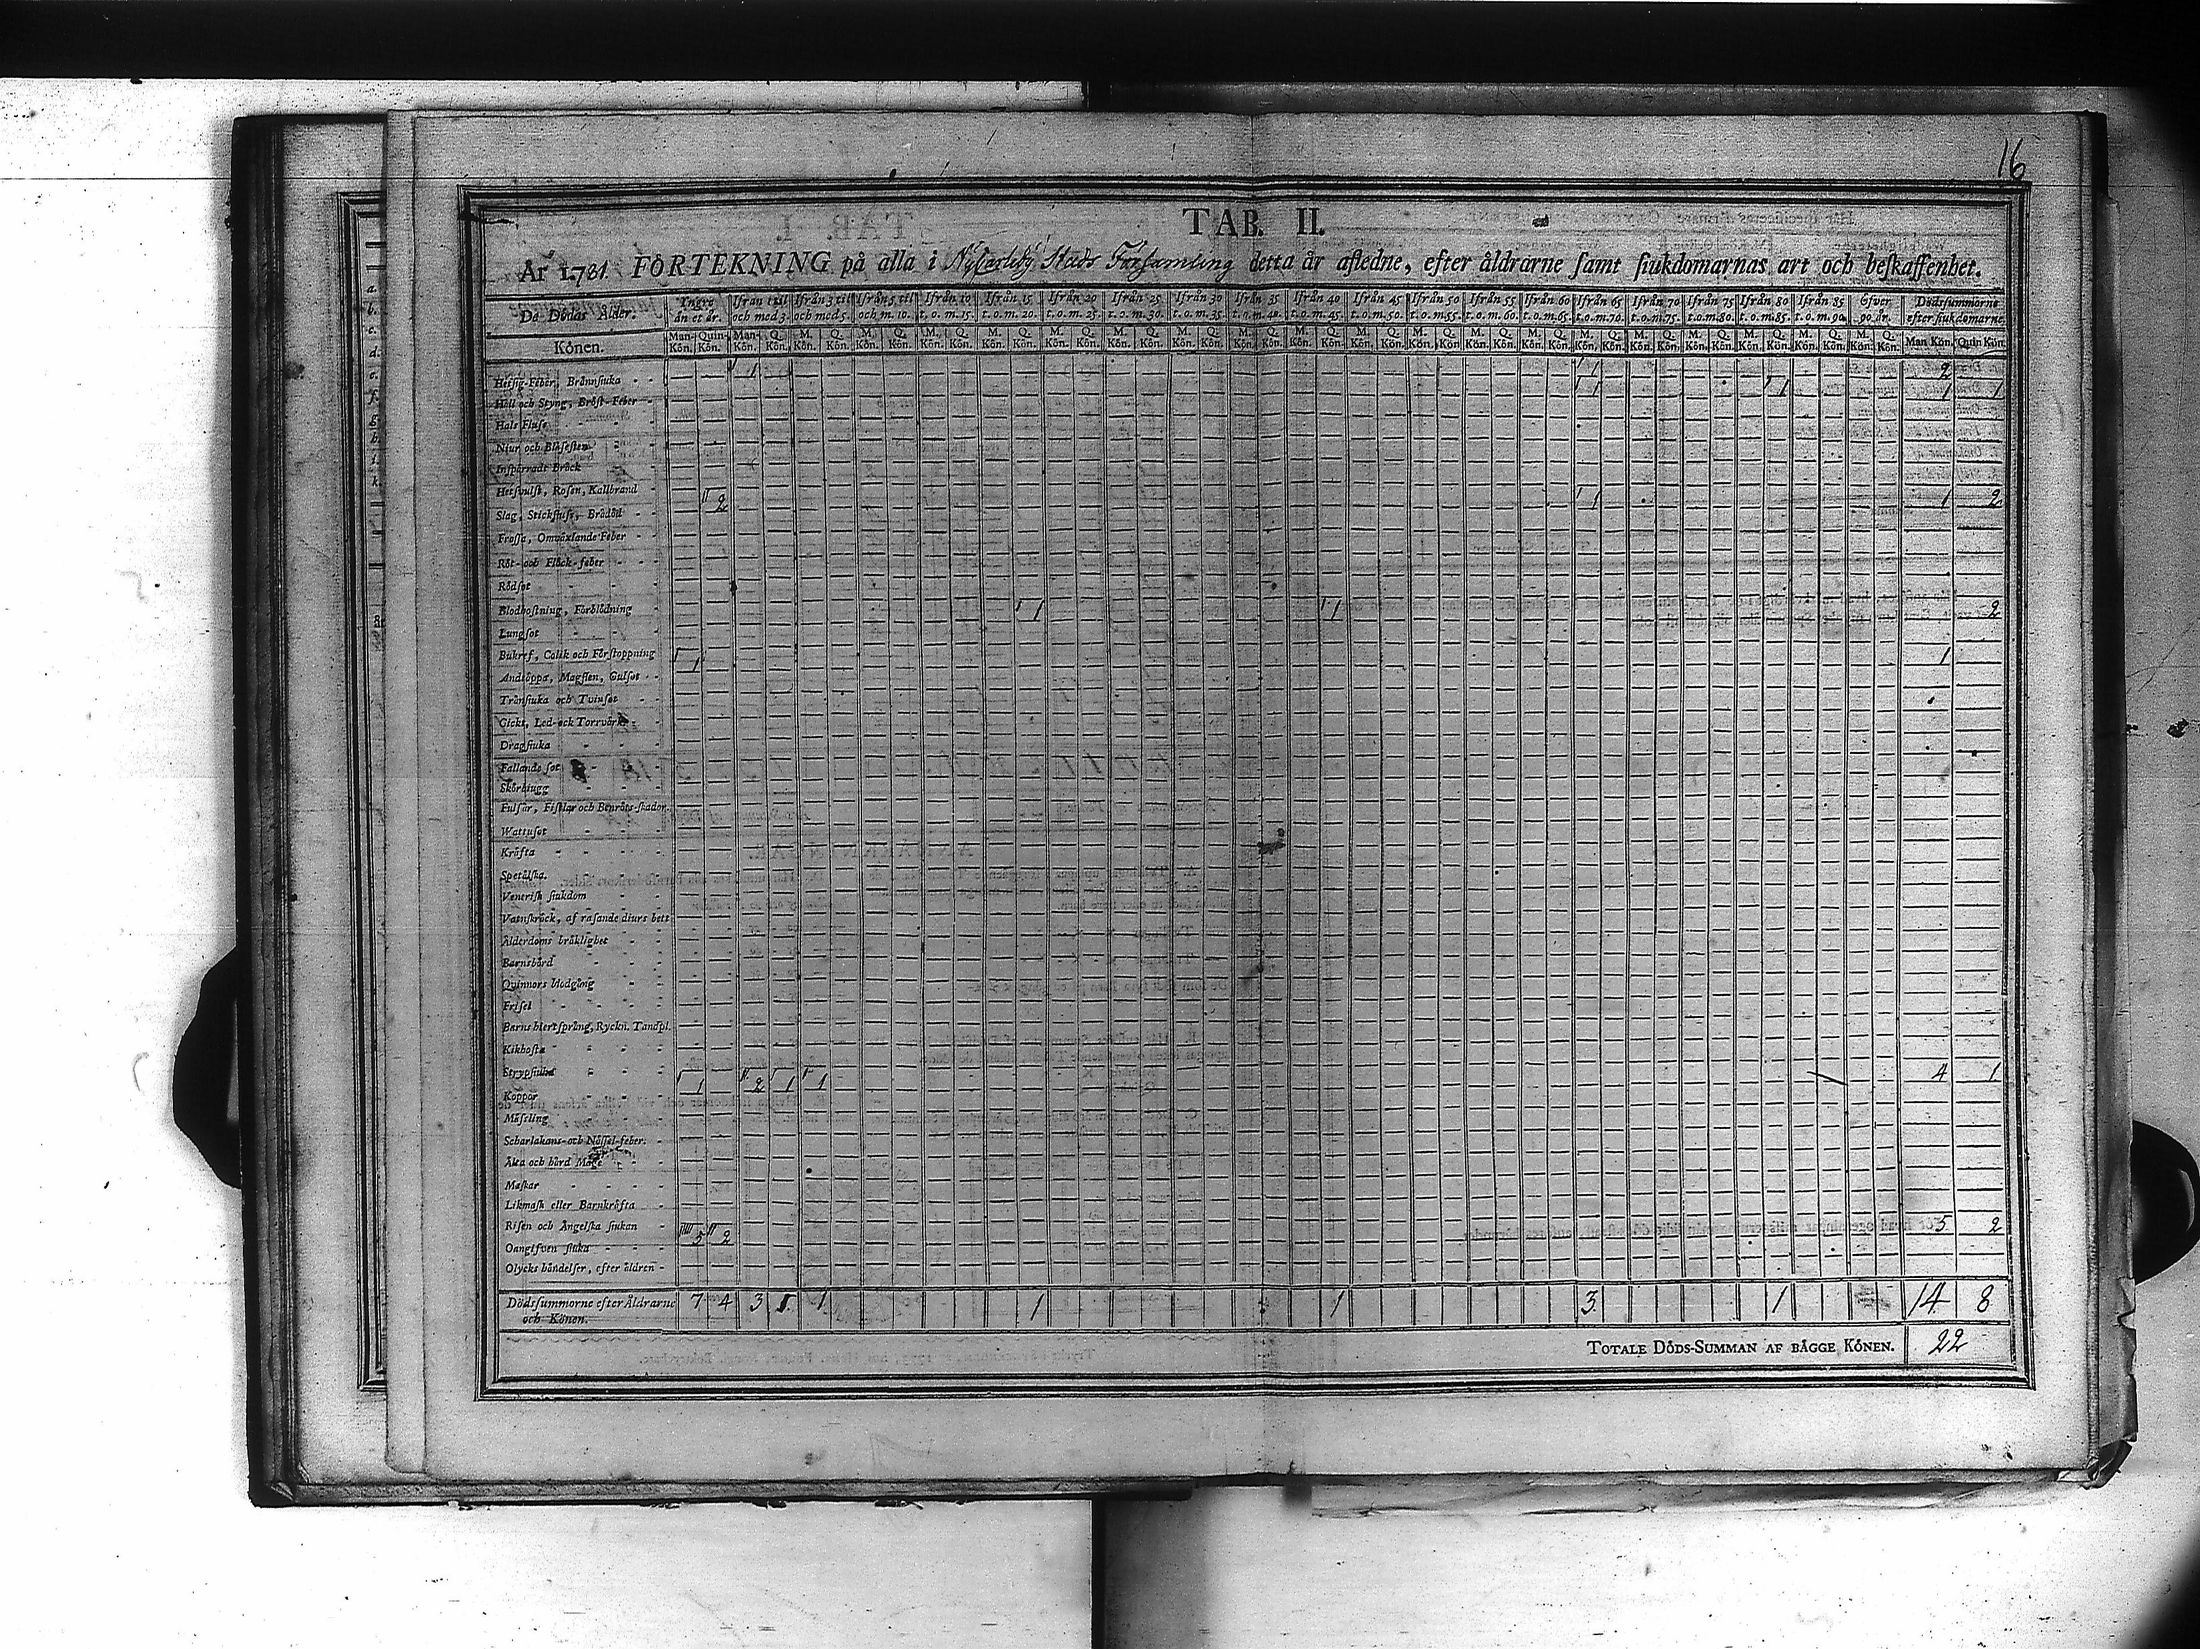 16
TAB. II.
År 1781. FÖRTEKNING på alla i NyCarleby Stads Församling detta år afledne, efter åldrarne samt siukdomarnas art och beskaffenhet.
De Dödas Ålder. Yngre än et år. Ifrån 1 til och med 3. Ifrån 3 til och med 5. Ifrån 5 til och m. 10. Ifrån 10 t. o. m. 15. Ifrån 15 t. o. m. 20. Ifrån 20 t. o. m. 25. Ifrån 25 t. o. m. 30. Ifrån 30 t. o. m. 35. Ifrån 35 t. o. m. 40. Ifrån 40 t. o. m. 45. Ifrån 45 t. o. m. 50. Ifrån 50 t. o. m. 55. Ifrån 55 t. o. m. 60. Ifrån 60 t. o. m. 65. Ifrån 65 t. o. m. 70. Ifrån 70 t. o. m. 75. Ifrån 75 t. o. m. 80. Ifrån 80 t. o. m. 85. Ifrån 85 t. o. m. 90. Öfver 90 år. Dödssummorne efter siukdomarne
Könen. Man-Kön. Quin-Kön. Man-Kön. Q. Kön. M. Kön. Q. Kön. M. Kön. Q. Kön. M. Kön. Q. Kön. M. Kön. Q. Kön. M. Kön. Q. Kön. M. Kön. Q. Kön. M. Kön. Q. Kön. M. Kön. Q. Kön. M. Kön. Q. Kön. M. Kön. Q. Kön. M. Kön. Q. Kön. M. Kön. Q. Kön. M. Kön. Q. Kön. M. Kön. Q. Kön. M. Kön. Q. Kön. M. Kön. Q. Kön. M. Kön. Q. Kön. M. Kön. Q. Kön. M. Kön. Q. Kön. Man Kön. Quin Kön.
Hetsig-Feber, Brännsiuka 1 1 2
Håll och Styng, Bröst-Feber 1 1 1 1
Hals Fluss
Niur och Blåsesten
Inspärradt Bråck
Hetsvulst, Rosen, Kallbrand
Slag, Stickfluss, Brådöd 2 1 1 2
Frossa, Omväxlande Feber
Röt- och Fläck-feber
Rödsot
Blodhostning, Förblödning 1 1 2
Lungsot
Bukref, Colik och Förstoppning 1 1
Andtäppa, Magsten, Gulsot
Trånsiuka och Tvinsot
Gickt, Led- ock Torrvärk
Dragsiuka
Fallande sot
Skörbiugg
Fulsår, Fistlar och Benröts-skador
Wattusot
Kräfta
Spetälska.
Venerisk siukdom
Vatnskräck, af rasande diurs bett
Ålderdoms bräklighet
Barnsbörd
Quinnors blodgång
Frisel
Barns hiertsprång, Ryckn. Tandpl.
Kikhosta
Strypsiuka 1 2 1 1 4 1
Koppor
Mässling
Scharlakans- och Nässel-feber.
Älta och hård Mage
Maskar
Likmask eller Barnkräfta
Risen och Ängelska siukan 5 2 5 2
Oangifven siuka
Olycks händelser, efter åldren
Dödssummorne efter Åldrarne och Könen. 7 4 3 1 1 1 1 3 1 14 8
TOTALE DÖDS-SUMMAN AF BÅGGE KÖNEN. 22